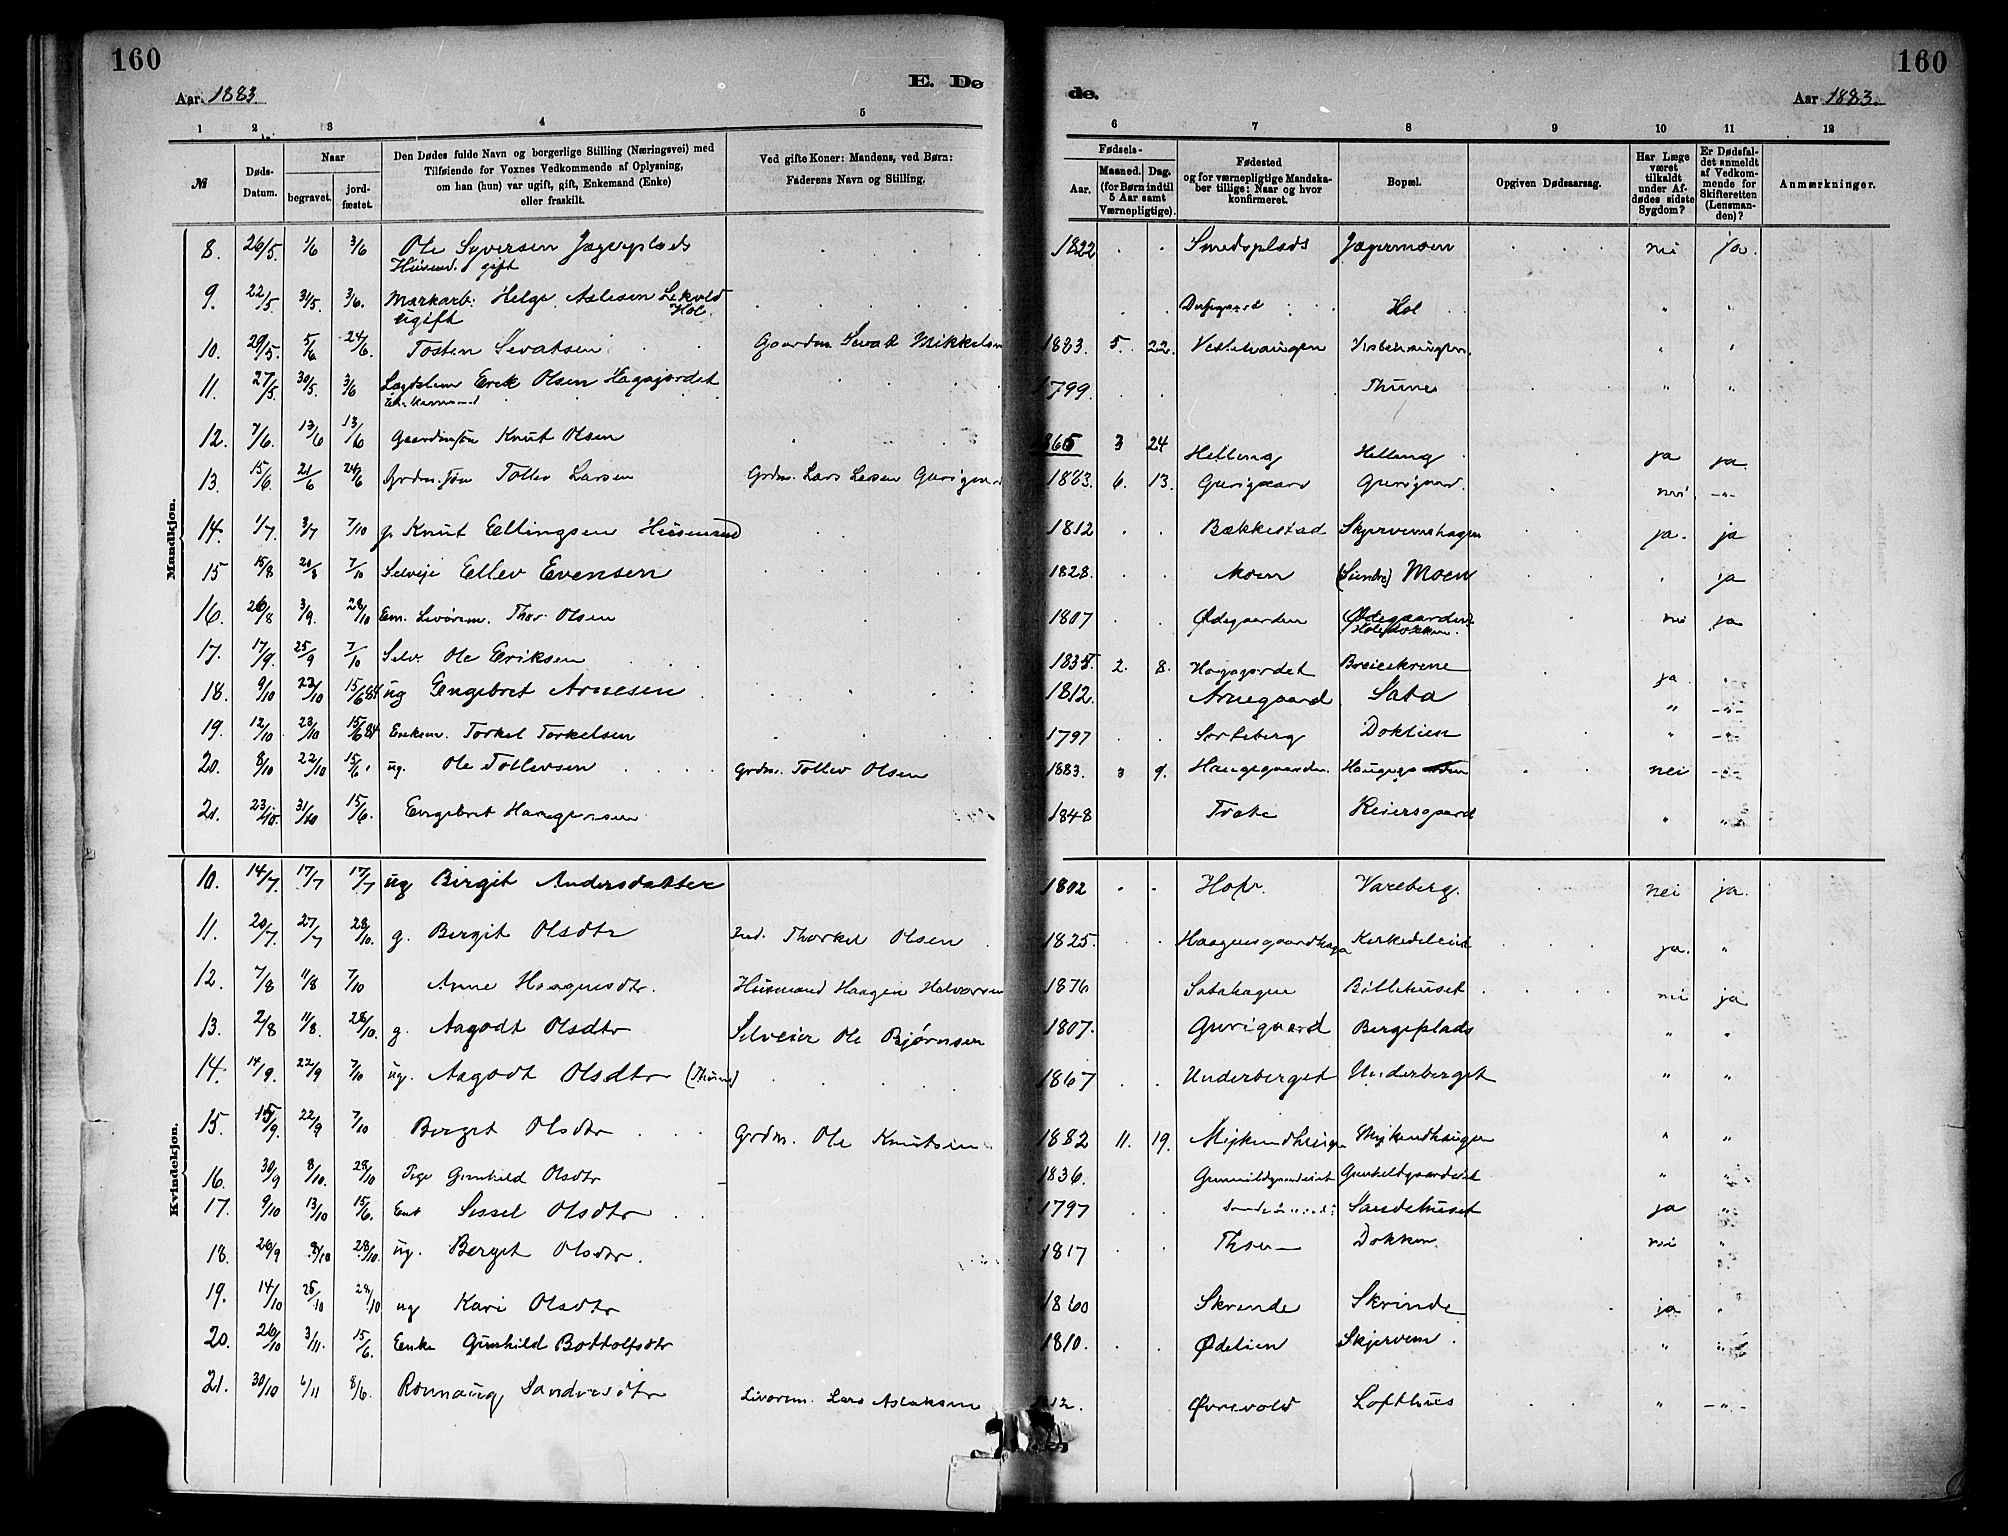 160
Aar. 1883.
E. Dø
de.
Aar 1883.
160
1 2 3 4 5 6 7 8 9 10 11 12
№
Døds-Datum.
Naar
begravet. jordfæstet.
Den Dødes fulde Navn og borgerlige Stilling (Næringsvei) med
Tilføiende for Voxnes Vedkommende af Oplysning,
om han (hun) var ugift, gift, Enkemand (Enke)
eller fraskilt.
Ved gifte Koner: Mandens, ved Børn:
Faderens Navn og Stilling.
Fødsels-
Aar. Maaned. Dag.
(for Børn indtil
5 Aar samt
Værnepligtige).
Fødested
og for værnepligtige Mandskaber tillige: Naar og hvor
konfirmeret.
Bopæl.
Opgiven Dødsaarsag.
Har Læge
været
tilkaldt
under Afdødes sidste
Sygdom?
Er Dødsfaldet anmeldt
af Vedkommende for
Skifteretten
(Lensmanden)?
Anmærkninger.
Mandkjøn.
8. 26/5. 1/6 3/6 Ole Syversen Jægerplads 1822 Smedsplads Jægermoen nei ja
Husmd. gift
9. 22/5 31/5. 3/6. Markarb: Helge Aslesen Lekvold Hol
ugift Hol.
10. 29/5. 5/6 24/6. Tosten Sevatsen Gaardm Sevat Mikkelsen 1883. 5. 22. Veslehaugen Veslehaugen
11. 27/5. 30/5. 3/6 Erik Olsen Hagajordet 1799. Thune
12. 7/6. 13/6 13/6 Gaardmsøn Knut Olsen 1865 3 24 Helling Helling ja ja
13. 15/6. 21/6 24/6 Grdm. søn Tollev Larsen Grdm. Lars Larsen Gurigaard 1883 6. 13. Gurigaard Gurigaard. nei -"-
14. 1/7. 3/7 7/10 g. Knut Ellingsen Husmand 1812 Bækkestad Skjervemshagen ja. ja
15 15/8 20/8 7/10 Selveje Ellev Evensen 1828. Moen (Sundre) Moen ja
16. 26/8 3/9. 28/10 Em. Livørem. Thor Olsen 1807 Ødegaarden (Ødegaarden nei ja
17. 17/9. 25/9 7/10 Selv. Ole Eriksen 1835. 2. 8. Hagajordet Breiekrene ja "
18. 9/10 23/10 15/6 84 ug Engebret Arnesen 1812. Arnegaard Sata " -"-
19. 12/10 23/10 15/6 84 Enkem. Torkel Torkelsen 1797 Sorteberg Doklien " -"-
20. 8/10 22/10 15/6. ug. Ole Tollevsen Grdm. Tollev Olsen 1883. 3 9. Haugegaarden nei -"-
21. 23/10. 31/10 15/6. Engebret Haagensen 1848 Tveto Reiersgaard " "
Kvindekjøn.
10. 14/7. 17/7 17/7 ug Birgit Andersdatter 1802 Hofr. Vareberg. nei ja.
11. 20/7. 27/7 28/10. g. Bergit Olsdtr Thorkel Olsen 1825. Haagensgaardhaga ja. "
12. 7/8 11/8 7/10 Anne Haagensdtr. Husmand Haagen Halvorsen 1876 Satahagen Bittehuset nei ja
13. 2/8 11/8. 28/10. g. Aagodt Olsdtr Selveier Ole Bjørnsen 1807. Gurigaard Bergeplads " "
14. 14/9. 22/9 7/10 ug. Aagodt Olsdtr (Thune) 1867 Underberget Underberget " "
15. 15/9. 22/9 7/10 Berget Olsdtr Grdm. Ole Knutsen 1882 11. 19. " "
16. 30/9 8/10. 28/10 Pige Gunhild Olsdtr 1836. " "
17. 9/10 13/10 15/6. Enk Sissel Olsdtr 1797 Sandehuset ja "
18. 26/9 8/10 28/10. ug. Berget Olsdtr. 1817 Dokken nei "
19. 14/10 25/10 28/10 ug Kari Olsdtr 1860 Skrinde Skrinde ja "
20. 26/10 3/11. 15/6. Enke Gunhild Bottolfsdtr 1810. Ødelien Skjervem " "
21. 30/10 6/11 8/6. Rønnaug Sandresdtr Livørem. Lars Aslaksen 12. Øvrevold Lofthus " -"-